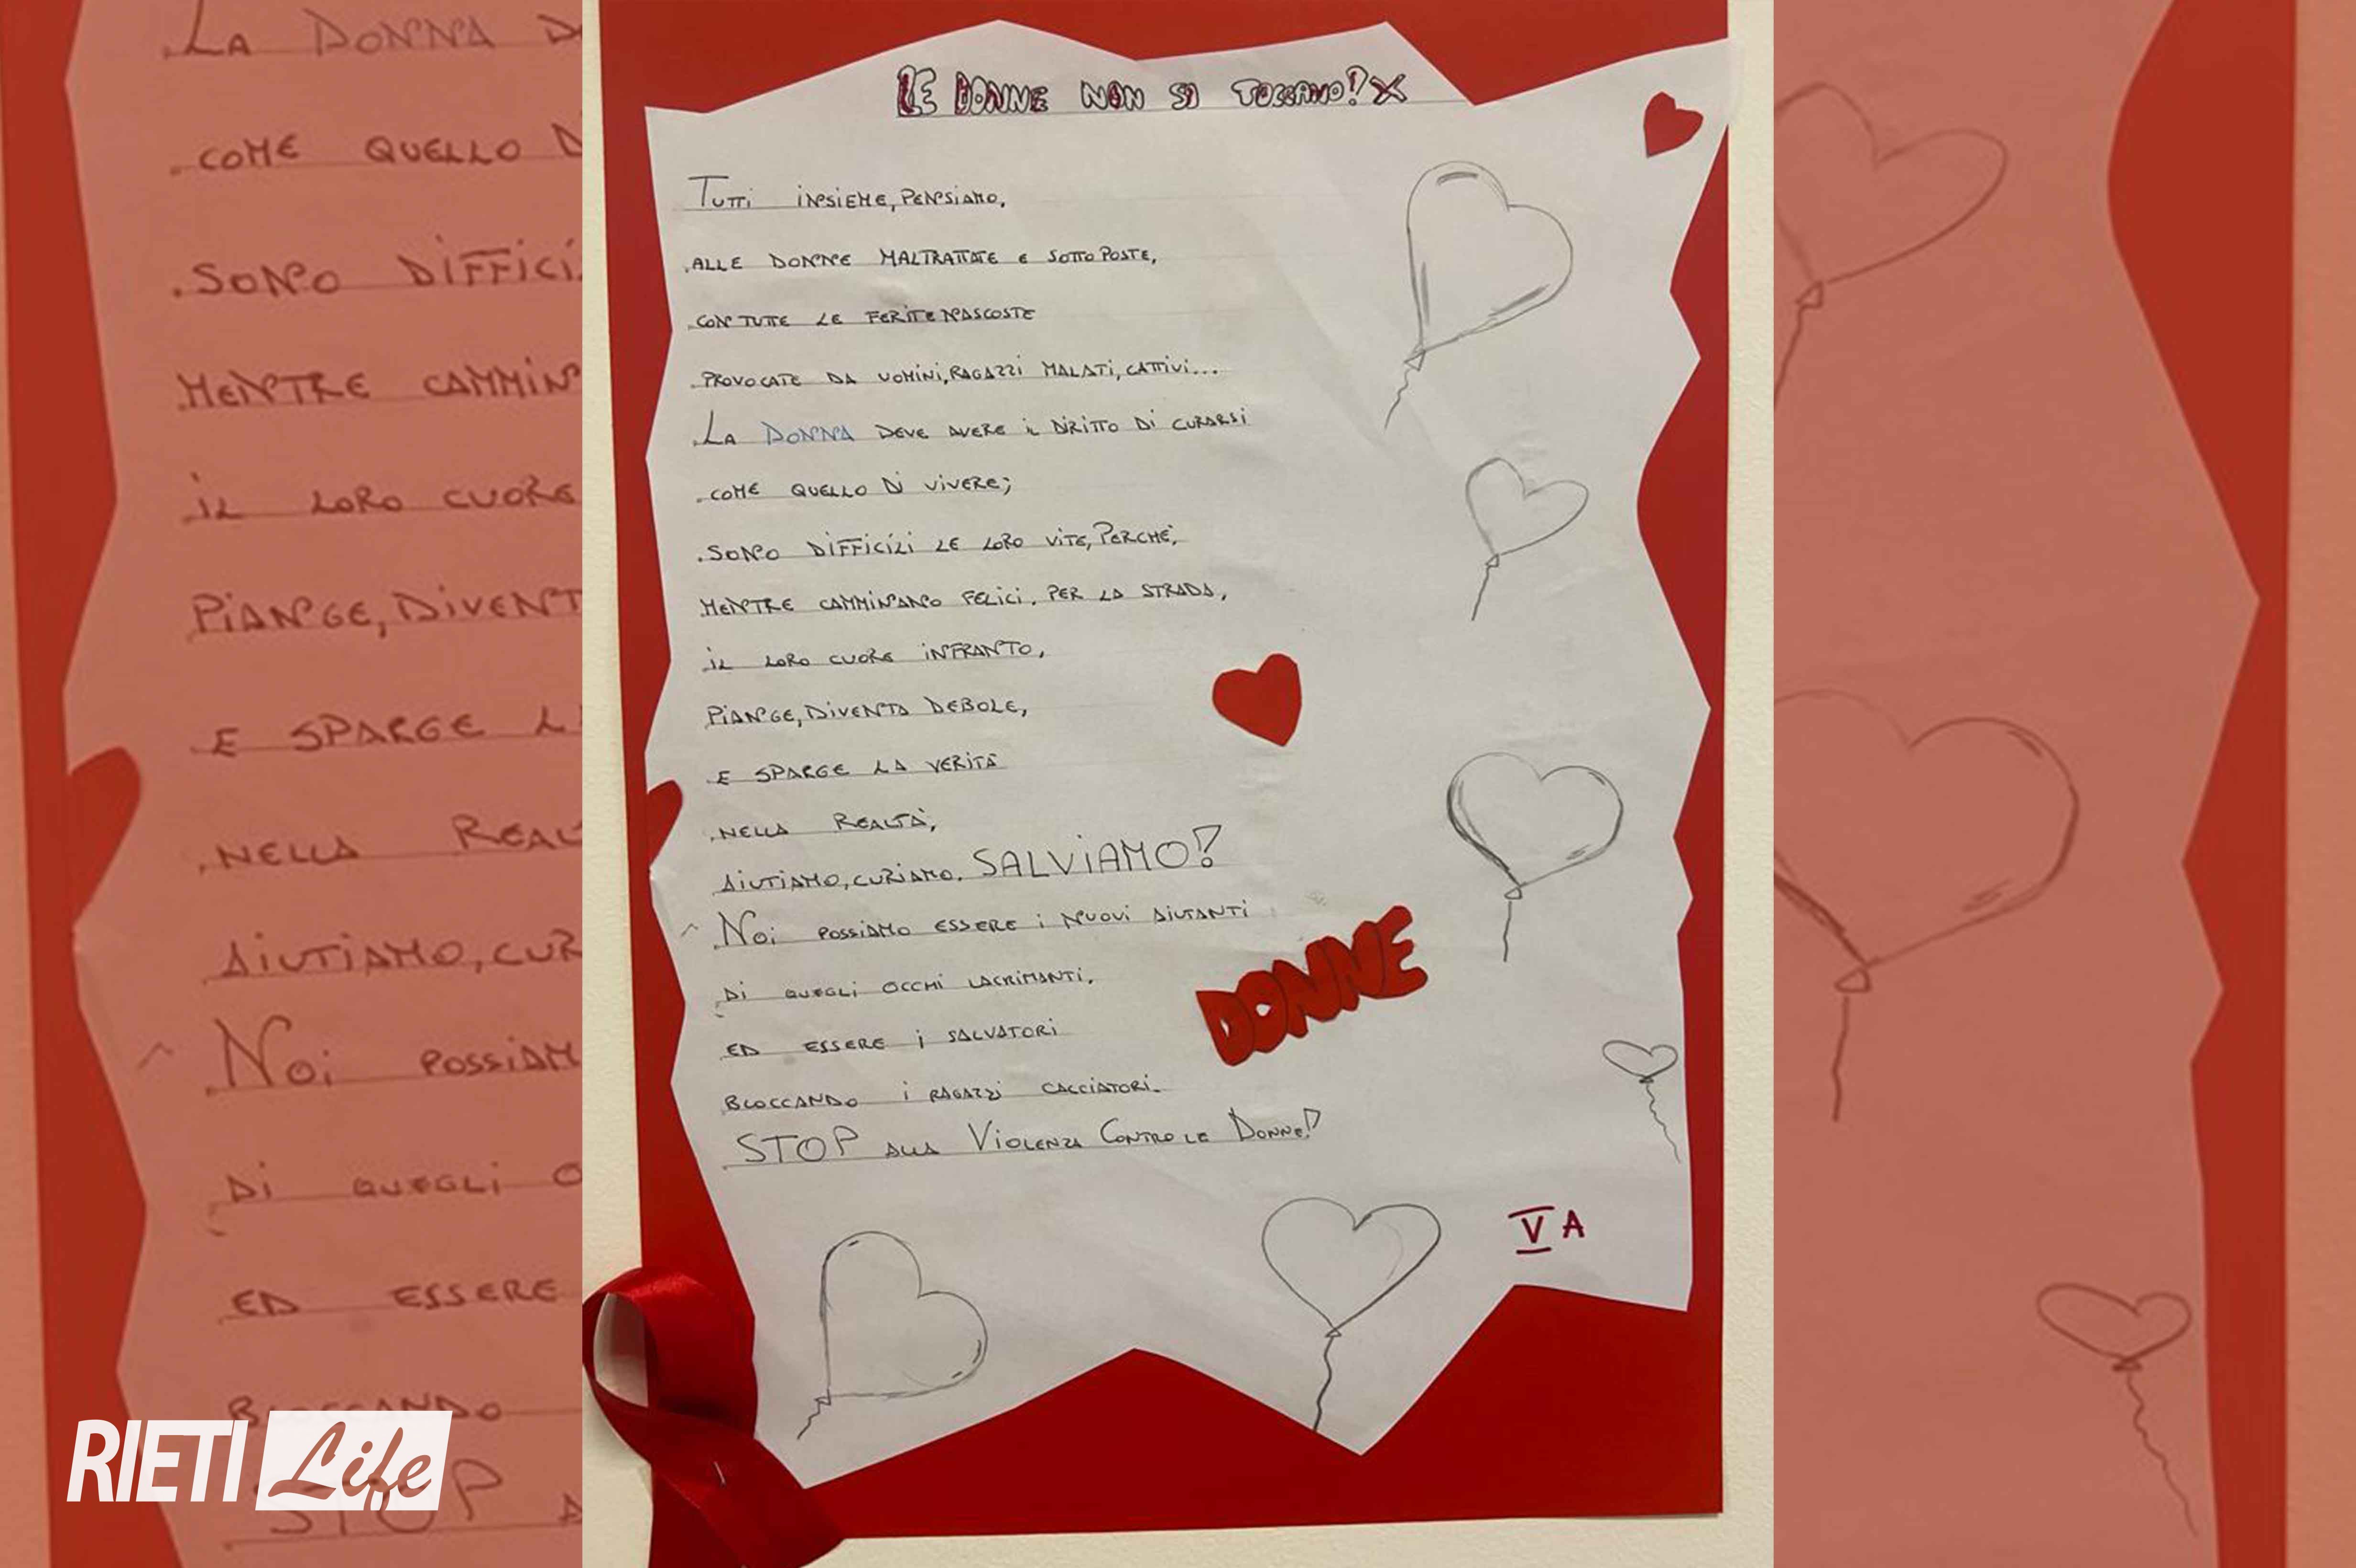 LE DONNE NON SI TOCCANO! X
TUTTI INSIEME, PENSIAMO,
ALLE DONNE MALTRATTATE E SOTTOPOSTE,
CON TUTTE LE FERITE NASCOSTE
PROVOCATE DA UOMINI, RAGAZZI MALATI, CATTIVI...
LA DONNA DEVE AVERE IL DIRITTO DI CURARSI
COME QUELLO DI VIVERE;
SONO DIFFICILI LE LORO VITE, PERCHÉ,
MENTRE CAMMINANO FELICI, PER LA STRADA,
IL LORO CUORE INFRANTO,
PIANGE, DIVENTA DEBOLE,
E SPARGE LA VERITÀ
NELLA REALTÀ,
AIUTIAMO, CURIAMO, SALVIAMO!
NOI POSSIAMO ESSERE I NUOVI AIUTANTI
DI QUEGLI OCCHI LACRIMANTI,
ED ESSERE I SALVATORI
BLOCCANDO I RAGAZZI CACCIATORI.
STOP ALLA VIOLENZA CONTRO LE DONNE!
DONNE
V A
RIETI Life